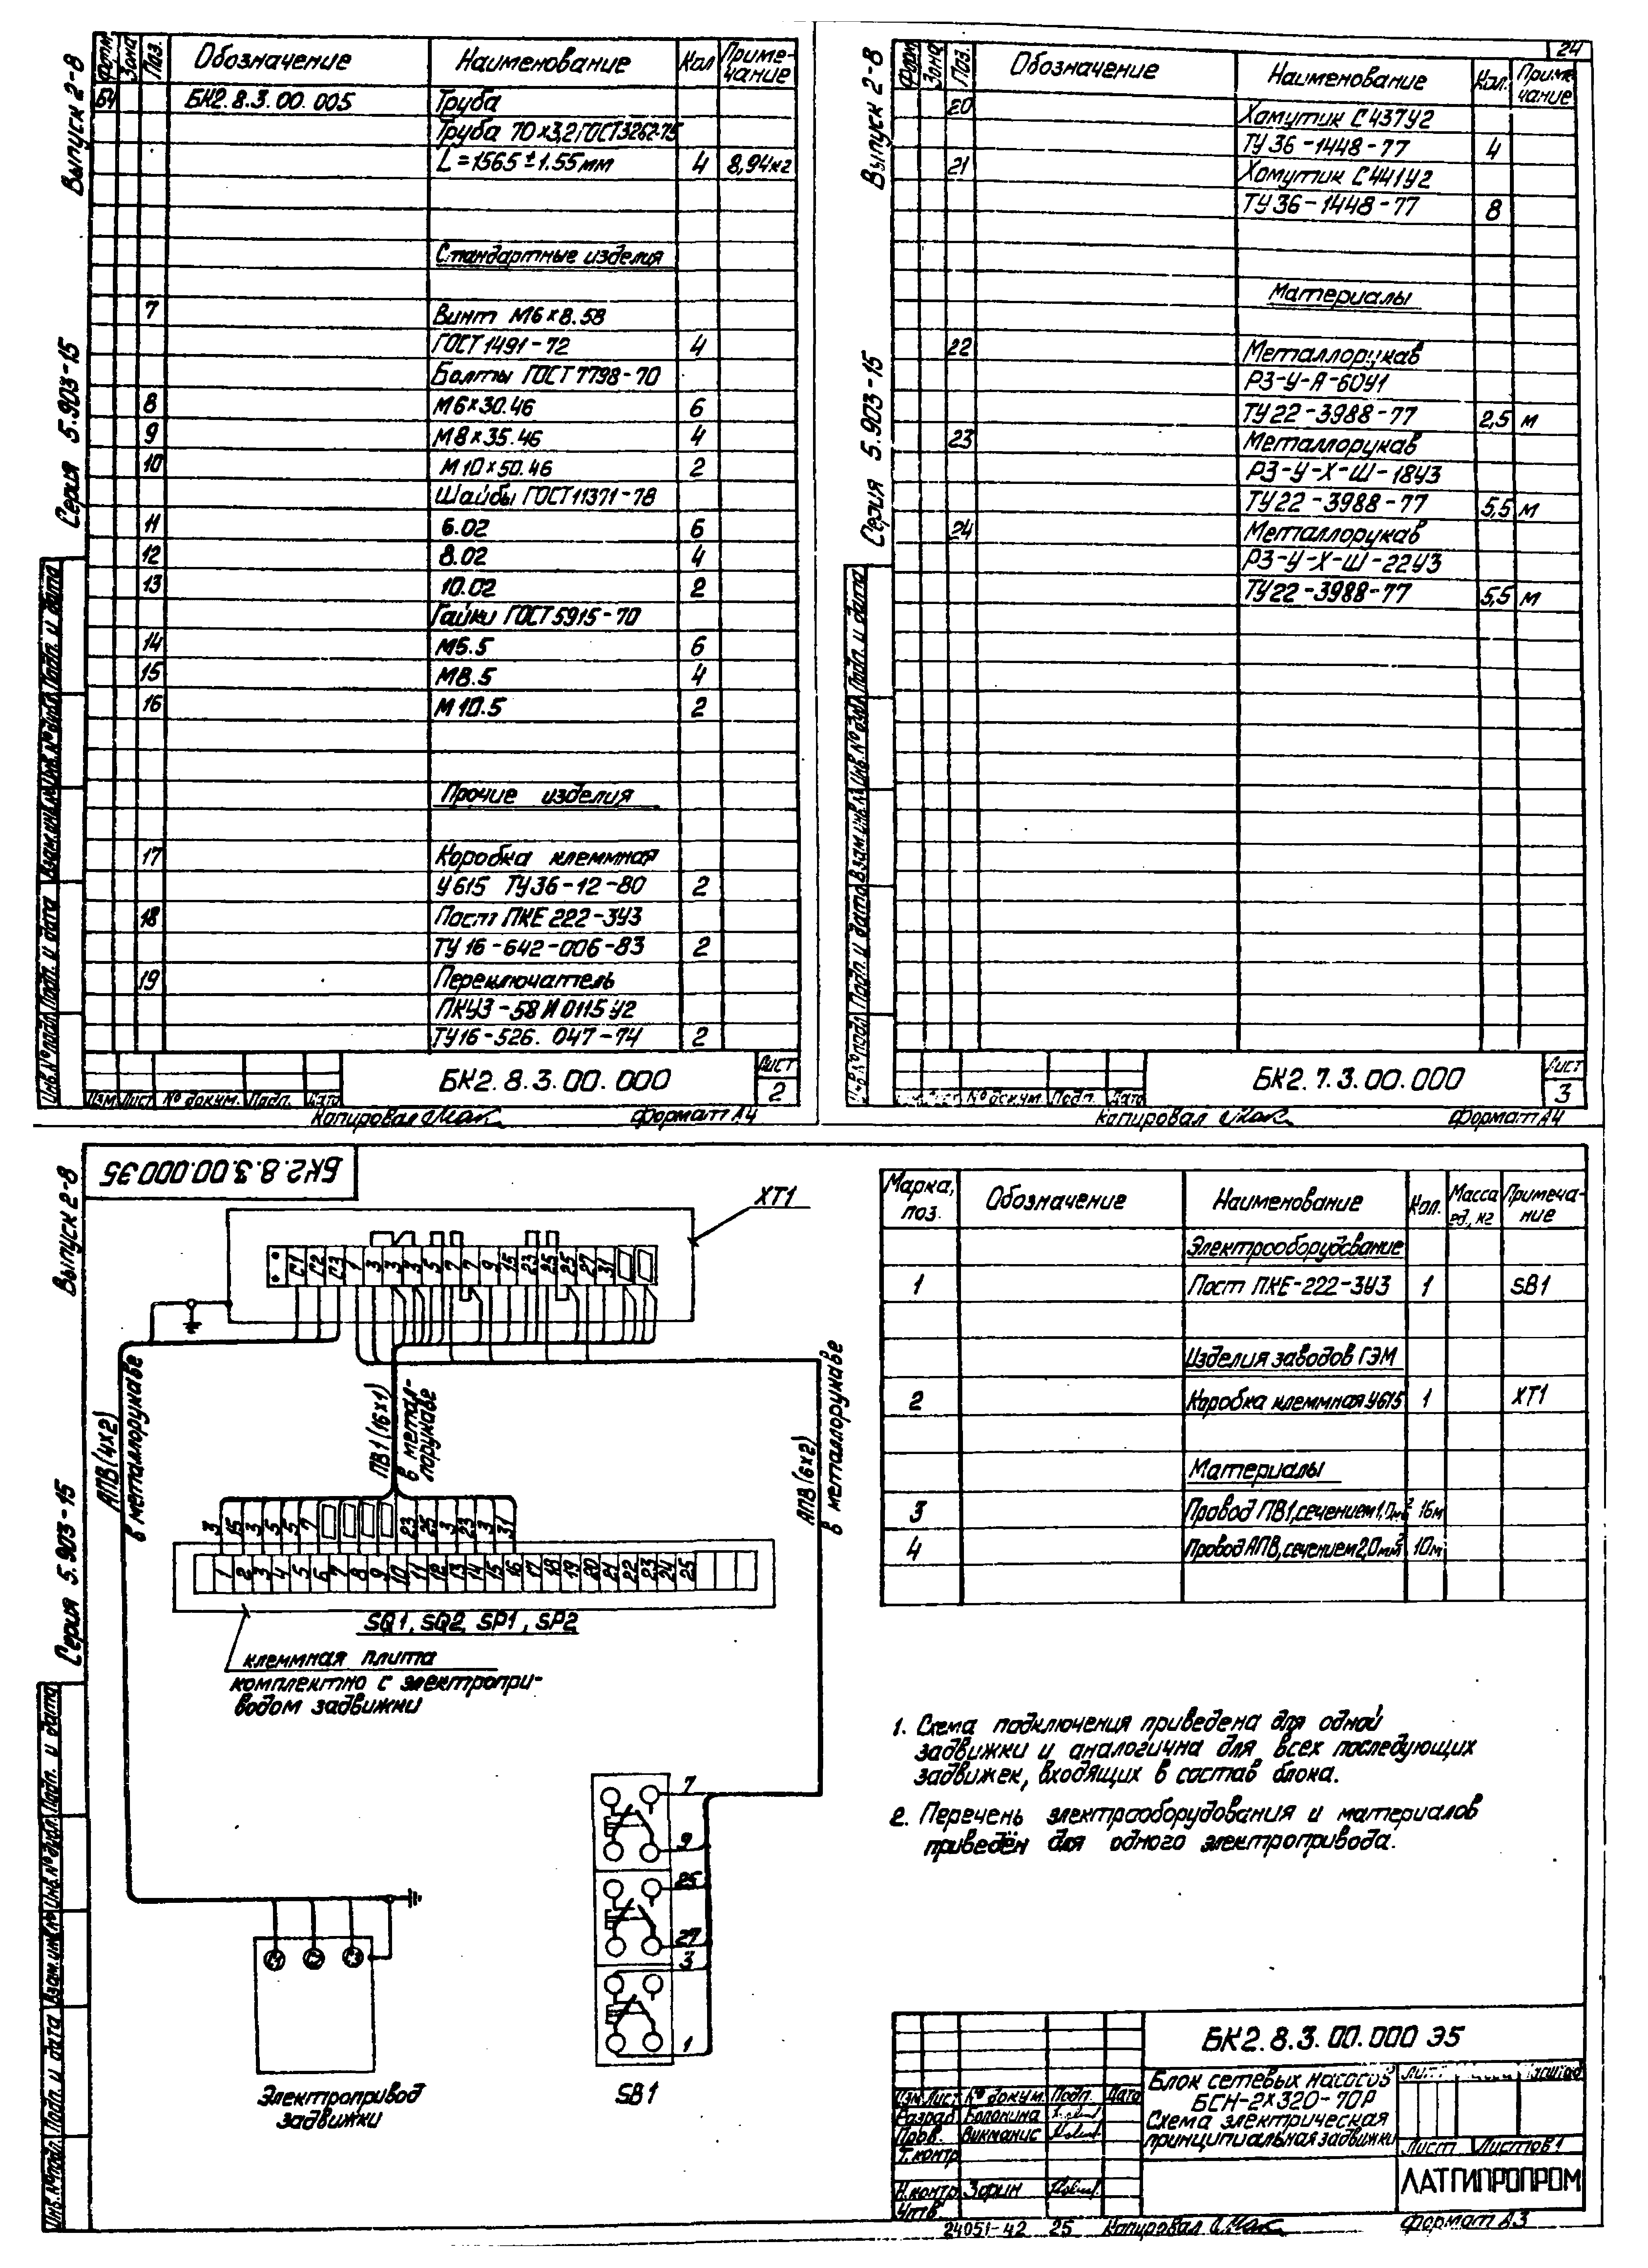 Выпуск 2-8
Серия 5.903-15
Форм. Зона Поз. Обозначение Наименование Кол Примечание
БЧ БК2.8.3.00.005 Труба
Труба 70×3,2 ГОСТ3262-75
L=1565±1.55мм 4 8,94кг
Стандартные изделия
7 Винт М6×8.58
ГОСТ1491-72 4
Болты ГОСТ7798-70
8 М6×30.46 6
9 М8×35.46 4
10 М10×50.46 2
Шайбы ГОСТ11371-78
11 6.02 6
12 8.02 4
13 10.02 2
Гайки ГОСТ5915-70
14 М6.5 6
15 М8.5 4
16 М10.5 2
Прочие изделия
17 Коробка клеммная
У615 ТУ36-12-80 2
18 Пост ПКЕ 222-3У3
ТУ16-642-006-83 2
19 Переключатель
ПКУ3-58И0115У2
ТУ16-526.047-74 2
Инв.№подл. Подп. и дата Взам.инв.№ Инв.№дубл. Подп. и дата
Изм Лист № докум. Подп. Дата
БК2.8.3.00.000
Лист
2
Копировал
Формат А4
24
Выпуск 2-8
Серия 5.903-15
Форм. Зона Поз. Обозначение Наименование Кол. Примечание
20 Хомутик С437У2
ТУ36-1448-77 4
21 Хомутик С441У2
ТУ36-1448-77 8
Материалы
22 Металлорукав
РЗ-У-А-60У1
ТУ22-3988-77 2,5 м
23 Металлорукав
РЗ-У-Х-Ш-18У3
ТУ22-3988-77 5,5 м
24 Металлорукав
РЗ-У-Х-Ш-22У3
ТУ22-3988-77 5,5 м
Инв.№подл. Подп. и дата Взам.инв.№ Инв.№дубл. Подп. и дата
№ докум. Подп. Дата
БК2.7.3.00.000
Лист
3
Копировал
Формат А4
Выпуск 2-8
Серия 5.903-15
БК2.8.3.00.000Э5
ХТ1
С1 С2 С3 1 3 3 3 5 7 7 9 15 23 25 25 27 31
АПВ(4×2)
в металлорукаве
ПВ1(16×1)
в метал-
лорукаве
АПВ(6×2)
в металлорукаве
3 15 3 5 5 7 23 25 3 23 3 31
1 2 3 4 5 6 7 8 9 10 11 12 13 14 15 16 17 18 19 20 21 22 23 24 25
SQ1, SQ2, SP1, SP2
клеммная плита
комплектно с электропри-
водом задвижки
7
9
25
27
3
1
SB1
С1 С2 С3
Электропривод
задвижки
Марка, поз. Обозначение Наименование Кол. Масса ед., кг Примечание
Электрооборудование
1 Пост ПКЕ-222-3У3 1 SB1
Изделия заводов ГЭМ
2 Коробка клеммная У615 1 ХТ1
Материалы
3 Провод ПВ1, сечением 1,0мм² 16м
4 Провод АПВ, сечением 2,0мм² 10м
1. Схема подключения приведена для одной
задвижки и аналогична для всех последующих
задвижек, входящих в состав блока.
2. Перечень электрооборудования и материалов
приведён для одного электропривода.
БК2.8.3.00.000 Э5
Изм Лист № докум. Подп. Дата
Разраб Болонина
Пров. Викманис
Т.контр
Н.контр Зорин
Утв
Блок сетевых насосов
БСН-2×320-70Р
Схема электрическая
принципиальная задвижки
Лист Листов 1
ЛАТГИПРОПРОМ
Инв.№подл. Подп. и дата Взам.инв.№ Инв.№дубл. Подп. и дата
24051-42 25 Копировал
Формат А3